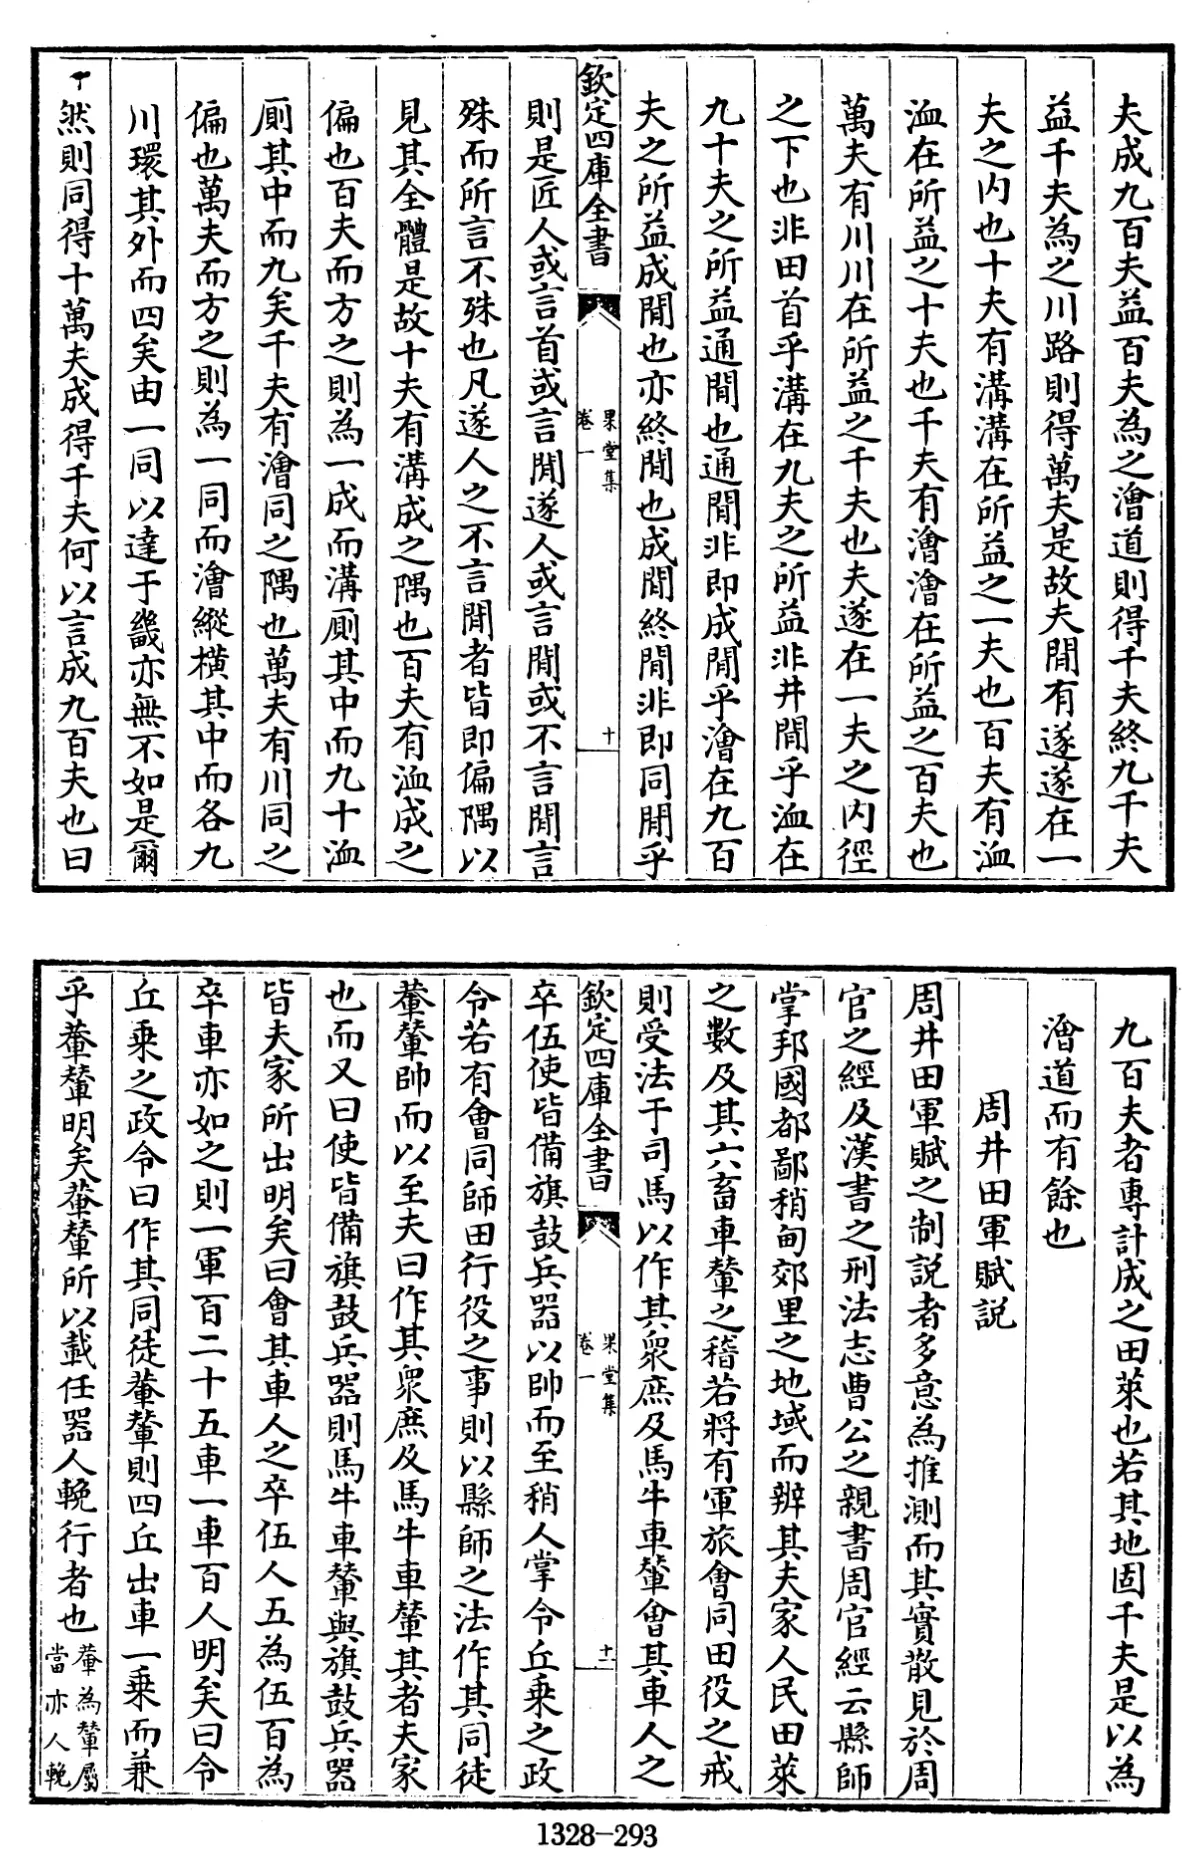 夫成九百夫益百夫為之澮道則得千夫終九千夫
益千夫為之川路則得萬夫是故夫閒有遂遂在一
夫之内也十夫有溝溝在所益之一夫也百夫有洫
洫在所益之十夫也千夫有澮澮在所益之百夫也
萬夫有川川在所益之千夫也夫遂在一夫之内徑
之下也非田首乎溝在九夫之所益非井閒乎洫在
九十夫之所益通閒也通閒非即成閒乎澮在九百
夫之所益成閒也亦終閒也成閒終閒非即同閒乎
欽定四庫全書
果堂集
卷一
十
則是匠人或言首或言閒遂人或言閒或不言閒言
殊而所言不殊也凡遂人之不言閒者皆即偏隅以
見其全體是故十夫有溝成之隅也百夫有洫成之
偏也百夫而方之則為一成而溝廁其中而九十洫
廁其中而九矣千夫有澮同之隅也萬夫有川同之
偏也萬夫而方之則為一同而澮縱橫其中而各九
川環其外而四矣由一同以達于畿亦無不如是爾
然則同得十萬夫成得千夫何以言成九百夫也曰
九百夫者專計成之田萊也若其地固千夫是以為
澮道而有餘也
周井田軍賦説
周井田軍賦之制説者多意為推測而其實散見於周
官之經及漢書之刑法志曹公之親書周官經云縣師
掌邦國都鄙稍甸郊里之地域而辨其夫家人民田萊
之數及其六畜車輦之稽若將有軍旅會同田役之戒
則受法于司馬以作其衆庶及馬牛車輦會其車人之
欽定四庫全書
果堂集
卷一
十一
卒伍使皆備旗鼓兵器以帥而至稍人掌令丘乘之政
令若有會同師田行役之事則以縣師之法作其同徒
輂輦帥而以至夫曰作其衆庶及馬牛車輦其者夫家
也而又曰使皆備旗鼓兵器則馬牛車輦與旗鼓兵器
皆夫家所出明矣曰會其車人之卒伍人五為伍百為
卒車亦如之則一軍百二十五車一車百人明矣曰令
丘乘之政令曰作其同徒輂輦則四丘出車一乘而兼
乎輂輦明矣輂輦所以載任器人輓行者也輂為輦屬
當亦人輓
1328-293